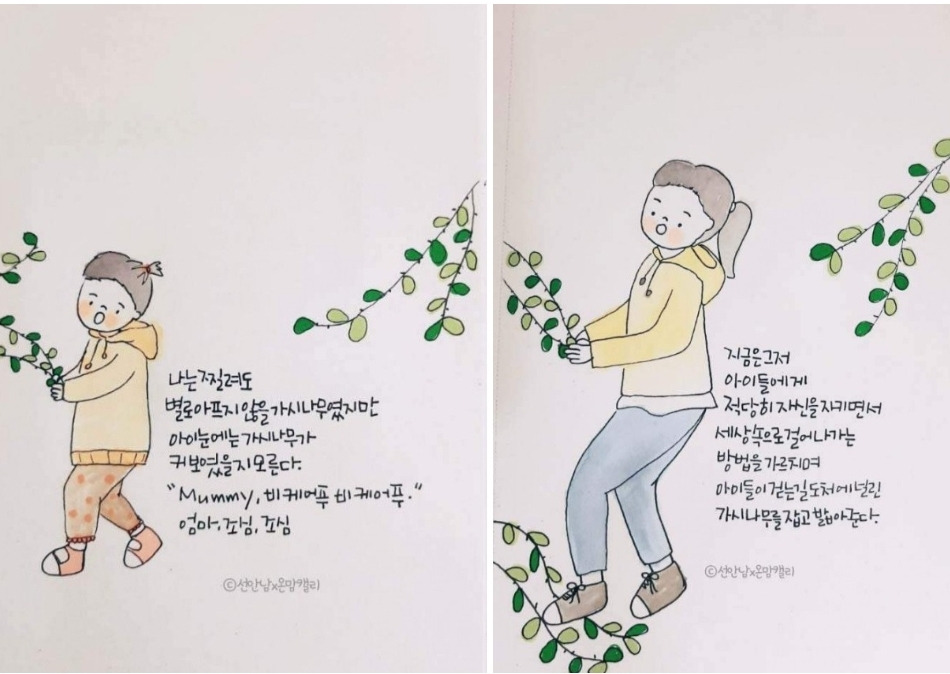 나는 찔려도
별로 아프지 않을 가시나무였지만
아이눈에는 가시나무가
커보였을지 모른다.
"Mummy, 비케어푸 비케어푸."
엄마, 조심, 조심
ⓒ선안남x온맘캘리
지금은 그저
아이들에게
적당히 자신을 지키면서
세상속으로 걸어나가는
방법을 가르치며
아이들이 걷는길 도처에 널린
가시나무를 잡고 밟아준다.
ⓒ선안남x온맘캘리